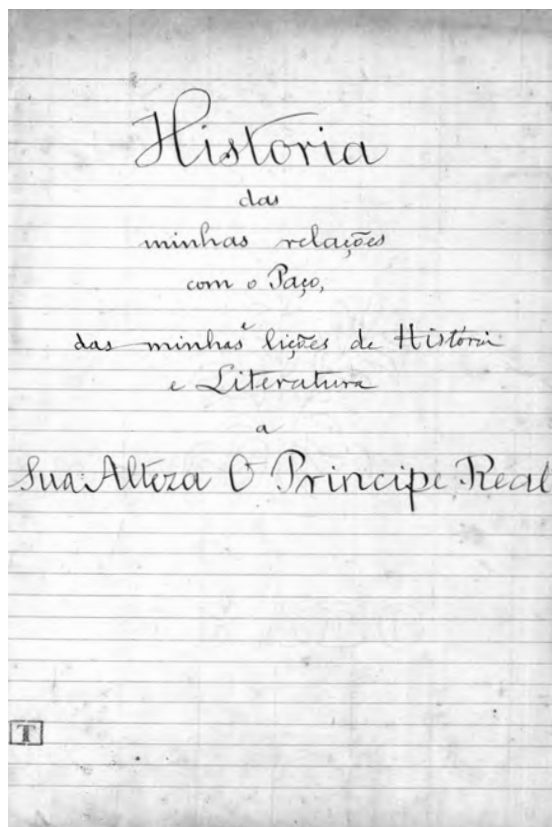 Historia
das
minhas relações
com o Paço,
das minhas lições de História
e Literatura
a
Sua Alteza O Principe Real
T